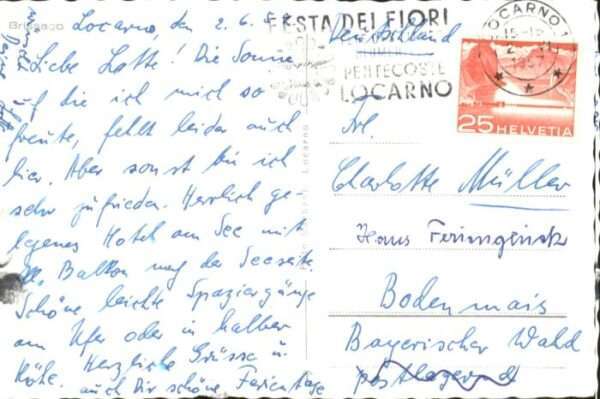 Brissago
Locarno, den 2. 6.
Liebe Lotte! Die Sonne,
auf die ich mich so
freute, fehlt leider auch
hier. Aber sonst bin ich
sehr zufrieden. Herrlich ge-
legenes Hotel am See mit
Balkon nach der Seeseite.
Schöne leichte Spaziergänge
am Ufer oder in halber
Höhe. Herzliche Grüsse u.
auch Dir schöne Ferientage
FESTA DEI FIORI
PENTECOSTE
LOCARNO
LOCARNO 1
1957
25 HELVETIA
Deutschland
Frl.
Charlotte Müller
Haus Ferienglück
Bodenmais
Bayerischer Wald
postlagernd